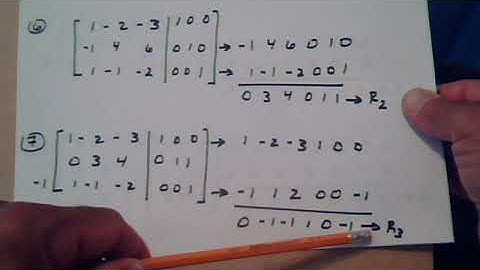 ⑥ [ 1 - 2 - 3 | 1 0 0 ]
-1 4 6 | 0 1 0 → -1 4 6 0 1 0
1 -1 -2 | 0 0 1 → 1 -1 -2 0 0 1
0 3 4 0 1 1 → R2
⑦ [ 1 - 2 - 3 | 1 0 0 ] → 1 -2 -3 1 0 0
0 3 4 | 0 1 1
-1 1 -1 -2 | 0 0 1 → -1 1 2 0 0 -1
0 -1 -1 1 0 -1 → R3